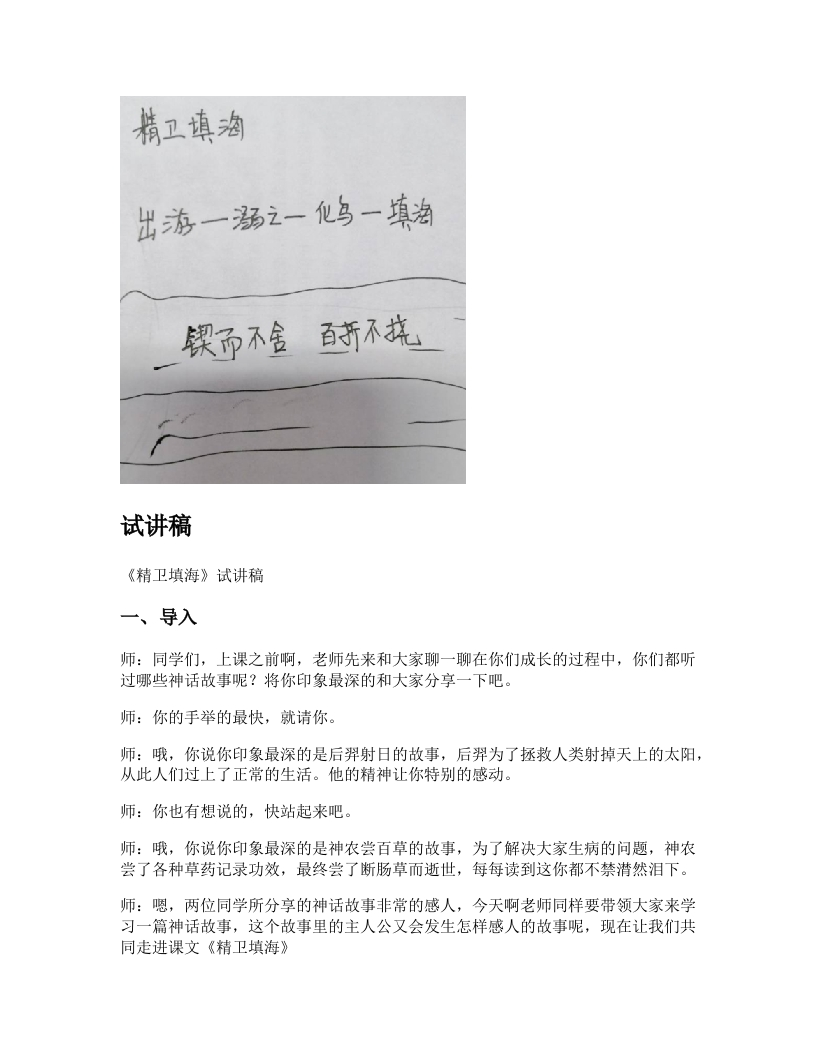 精卫填海
出游一溺之一化鸟一填海
锲而不舍 百折不挠
试讲稿
《精卫填海》试讲稿
一、导入
师：同学们，上课之前啊，老师先来和大家聊一聊在你们成长的过程中，你们都听
过哪些神话故事呢？将你印象最深的和大家分享一下吧。
师：你的手举的最快，就请你。
师：哦，你说你印象最深的是后羿射日的故事，后羿为了拯救人类射掉天上的太阳，
从此人们过上了正常的生活。他的精神让你特别的感动。
师：你也有想说的，快站起来吧。
师：哦，你说你印象最深的是神农尝百草的故事，为了解决大家生病的问题，神农
尝了各种草药记录功效，最终尝了断肠草而逝世，每每读到这你都不禁潸然泪下。
师：嗯，两位同学所分享的神话故事非常的感人，今天啊老师同样要带领大家来学
习一篇神话故事，这个故事里的主人公又会发生怎样感人的故事呢，现在让我们共
同走进课文《精卫填海》